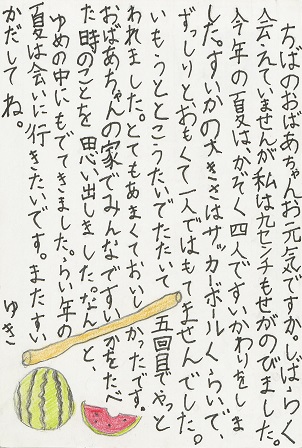 ちばのおばあちゃんお元気ですか。しばらく
会えていませんが私は九センチもせがのびました。
今年の夏はかぞく四人ですいかわりをしま
した。すいかの大きさはサッカーボールくらいで、
ずっしりとおもくて一人ではもてませんでした。
いもうととこうたいでたたいて、五回目でやっと
われました。とてもあまくておいしかったです。
おばあちゃんの家でみんなですいかをたべ
た時のことを思い出しました。なんと、
ゆめの中にもでてきました。らい年の
夏は会いに行きたいです。またすい
かだしてね。
ゆき